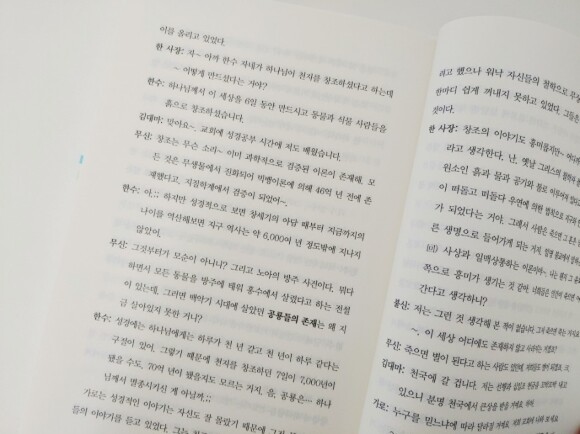 이를 올리고 있었다.
한 사장: 자~ 아까 한수 자네가 하나님이 천지를 창조하셨다고 하는데
~ 어떻게 만드셨다는 거야?
한수: 하나님께서 이 세상을 6일 동안 만드시고 동물과 식물 사람들을
흙으로 창조하셨습니다.
김대마: 맞아요~. 교회에 성경공부 시간에 저도 배웠습니다.
무신: 창조는 무슨 소리~ 이미 과학적으로 검증된 이론이 존재해. 모
든 것은 무생물에서 진화되어 빅뱅이론에 의해 46억 년 전에 존
재했다고, 지질학계에서 검증이 되었어~.
한수: 아,;; 하지만 성경적으로 보면 창세기의 아담 때부터 지금까지의
나이를 역산해보면 지구 역사는 약 6,000여 년 정도밖에 지나지
않았어.
무신: 그것부터가 모순이 아니니? 그리고 노아의 방주 사건이다, 뭐다
하면서 모든 동물을 방주에 태워 홍수에서 살렸다고 하는 전설
이 있는데, 그러면 백악기 시대에 살았던 공룡들의 존재는 왜 지
금 살아있지 못한 거니?
한수: 성경에는 하나님에게는 하루가 천 년 같고 천 년이 하루 같다는
구절이 있어. 그렇기 때문에 천지를 창조하던 7일이 7,000년이
됐을 수도, 70억 년이 됐을지도 모르는 거지. 음, 공룡은… 하나
님께서 멸종시키신 게 아닐까,;;
가로는 성경적인 이야기는 자신도 잘 몰랐기 때문에 그저
들의 이야기를 듣고 있었다.
라고 했으나 워낙 자신들의 철학으로
한마디 쉽게 꺼내지 못하고 있었다. 그들은
것이다.
한 사장: 창조의 이야기도 흥미롭지만~
라고 생각한다. 난, 옛날 그리스의 철학자
원소인 흙과 물과 공기와 불로 이루어져
이 떠돌고 떠돌다 우연에 의한 법칙으로
가 되었다는 거야. 그래서 사람은 죽으면
른 생명으로 들어가게 되는 거지.
사상과 일맥상통하는
쪽으로 흥미가 생기는 것 같아.
간다고 생각하니?
불신: 저는 그런 것 생각해 본 적이 없습니다.
~, 이 세상 어디에도 존재하지 않고 사라지는 거겠죠?
무신: 죽으면 별이 된다고 하는 사람도
김대마: 천국에 갈 겁니다. 저는
있으니 분명 천국에서 큰상을 받을 거예요.
가로: 누구를 믿느냐에 따라 달라질 거예요.